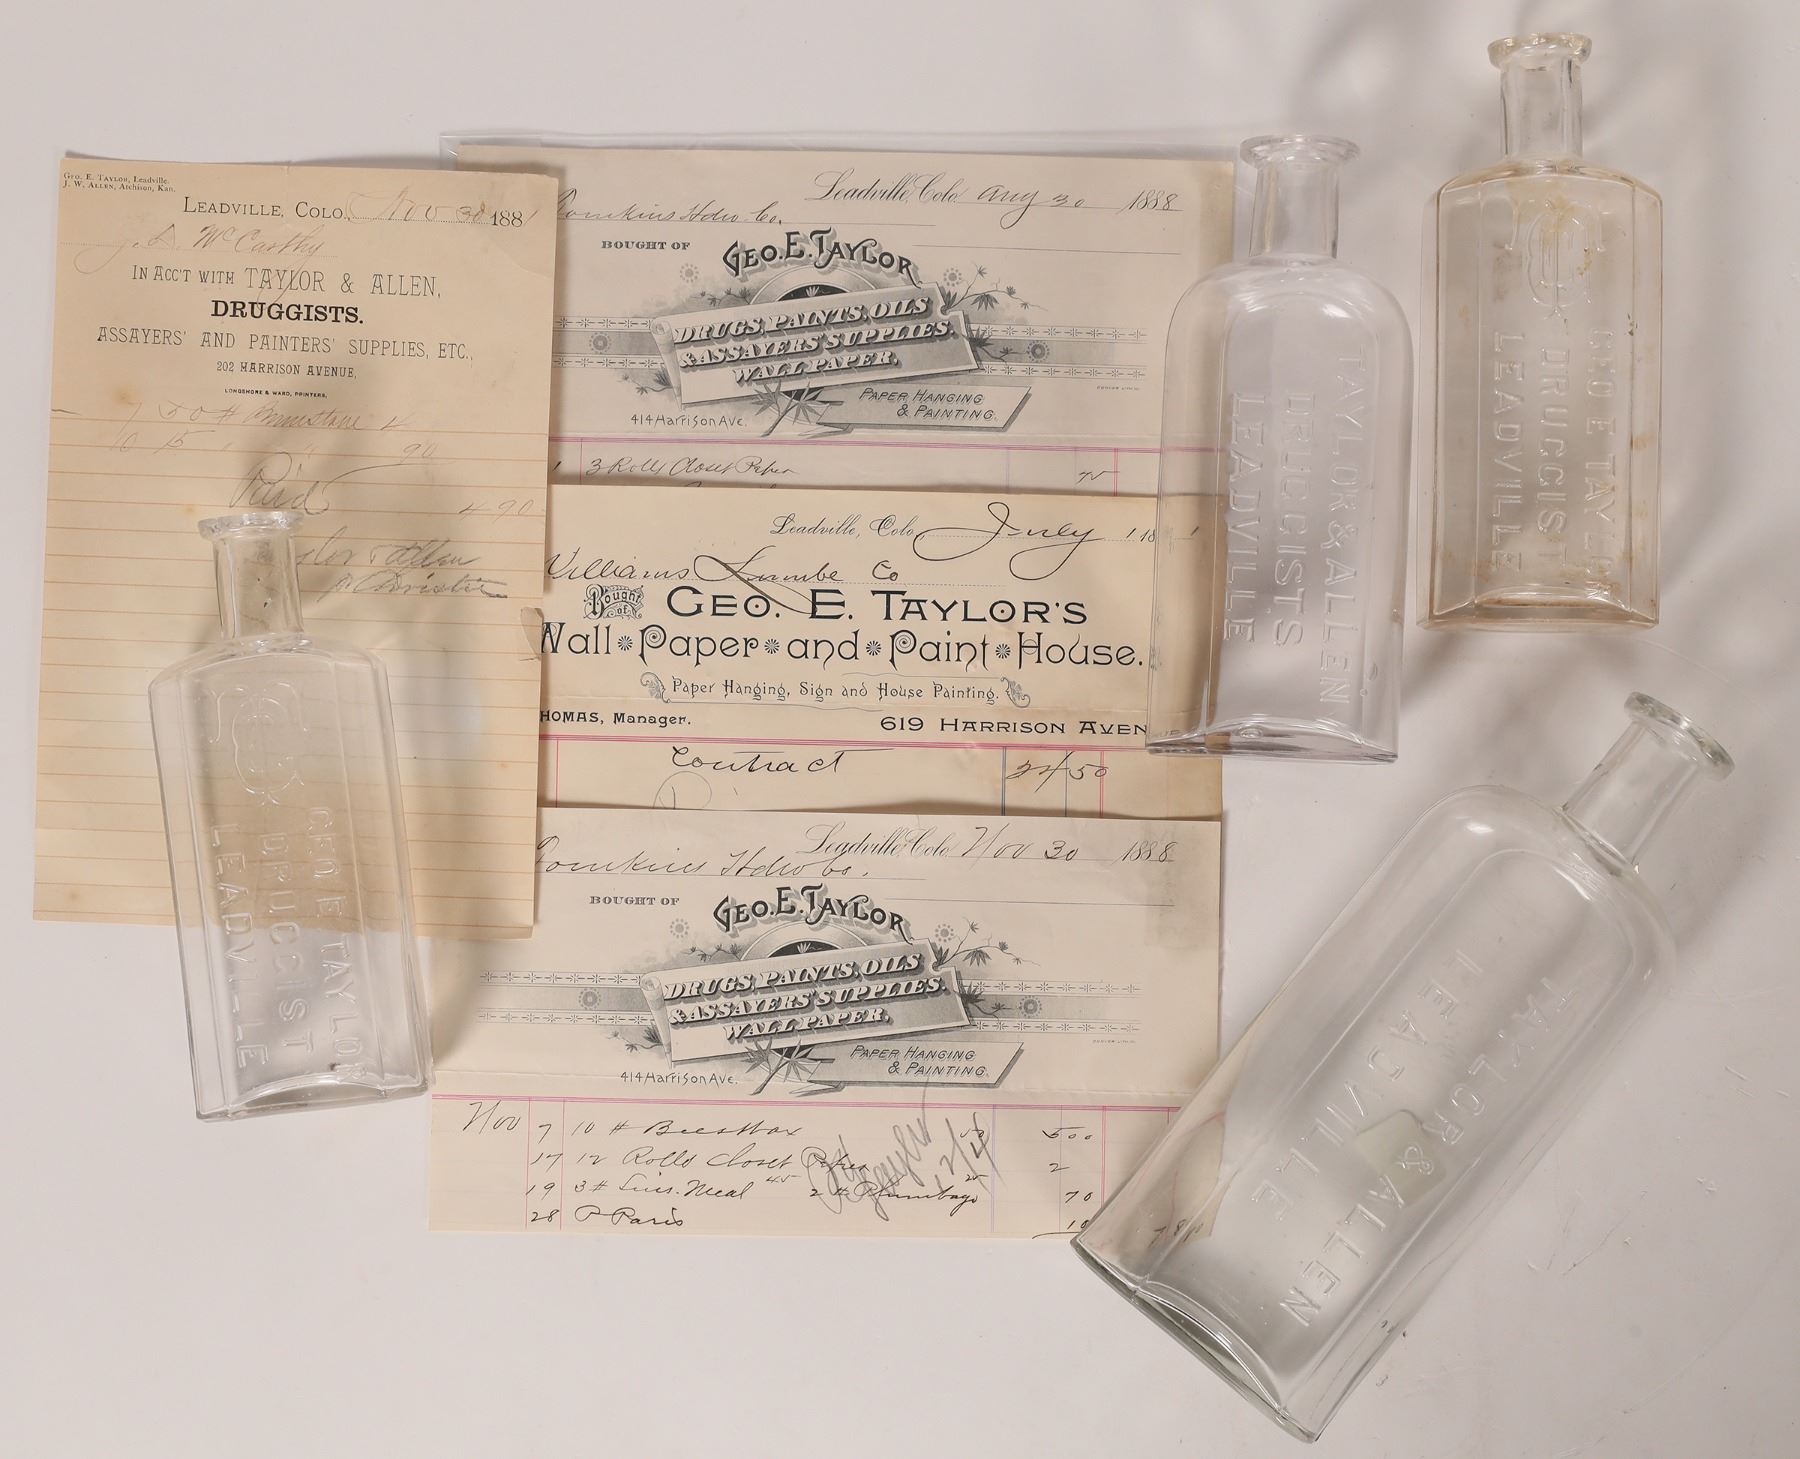 Geo. E. Taylor, Leadville.
J. W. Allen, Atchison, Kan.
Leadville, Colo., Nov 30 1881
McCarthy
In Acc't with Taylor & Allen,
DRUGGISTS.
Assayers' and Painters' Supplies, Etc.,
202 Harrison Avenue,
Longshore & Ward, Printers,
7 50 # Brimstone 4
10 15 " " 90
Paid 4 90
Allen
Leadville, Colo. Aug 30 1888
Tomkins Hdw Co.
BOUGHT OF
GEO. E. TAYLOR
DRUGS, PAINTS, OILS
& ASSAYERS' SUPPLIES.
WALL PAPER.
PAPER HANGING
& PAINTING.
414 Harrison Ave.
3 Rolls Closet Paper
Leadville, Colo July 1 18
Williams Lumbe Co
Bought of
GEO. E. TAYLOR'S
Wall Paper and Paint House.
Paper Hanging, Sign and House Painting.
HOMAS, Manager.
619 HARRISON AVEN
Contract 24 50
Leadville, Colo. Nov 30 1888
Tomkins Hdw Co.
BOUGHT OF
GEO. E. TAYLOR
DRUGS, PAINTS, OILS
& ASSAYERS' SUPPLIES.
WALL PAPER.
PAPER HANGING
& PAINTING.
414 Harrison Ave.
Nov 7 10 # Beeswax 50 500
17 12 Rolls Closet Paper 2
19 3 # Lins. Meal 45 2 # Plumbago 25 70
28 P Paris 10
12/4
GEO E TAYLOR
DRUGGIST
LEADVILLE
TAYLOR & ALLEN
DRUGGISTS
LEADVILLE
GEO E TAYLOR
DRUGGIST
LEADVILLE
TAYLOR & ALLEN
LEADVILLE